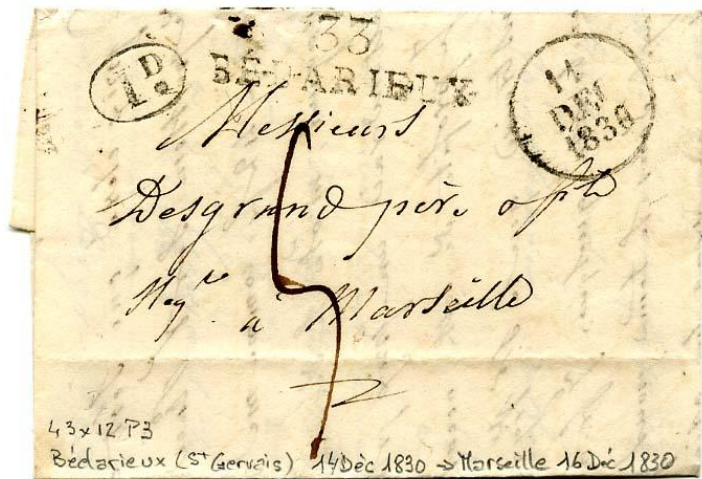 33
1D
BÉDARIEUX
14
DEC
1830
Messieurs
Desgrand père & fils
Neg.ts
à Marseille
5
43x12 P3
Bédarieux (St Gervais) 14 Déc 1830 → Marseille 16 Déc 1830